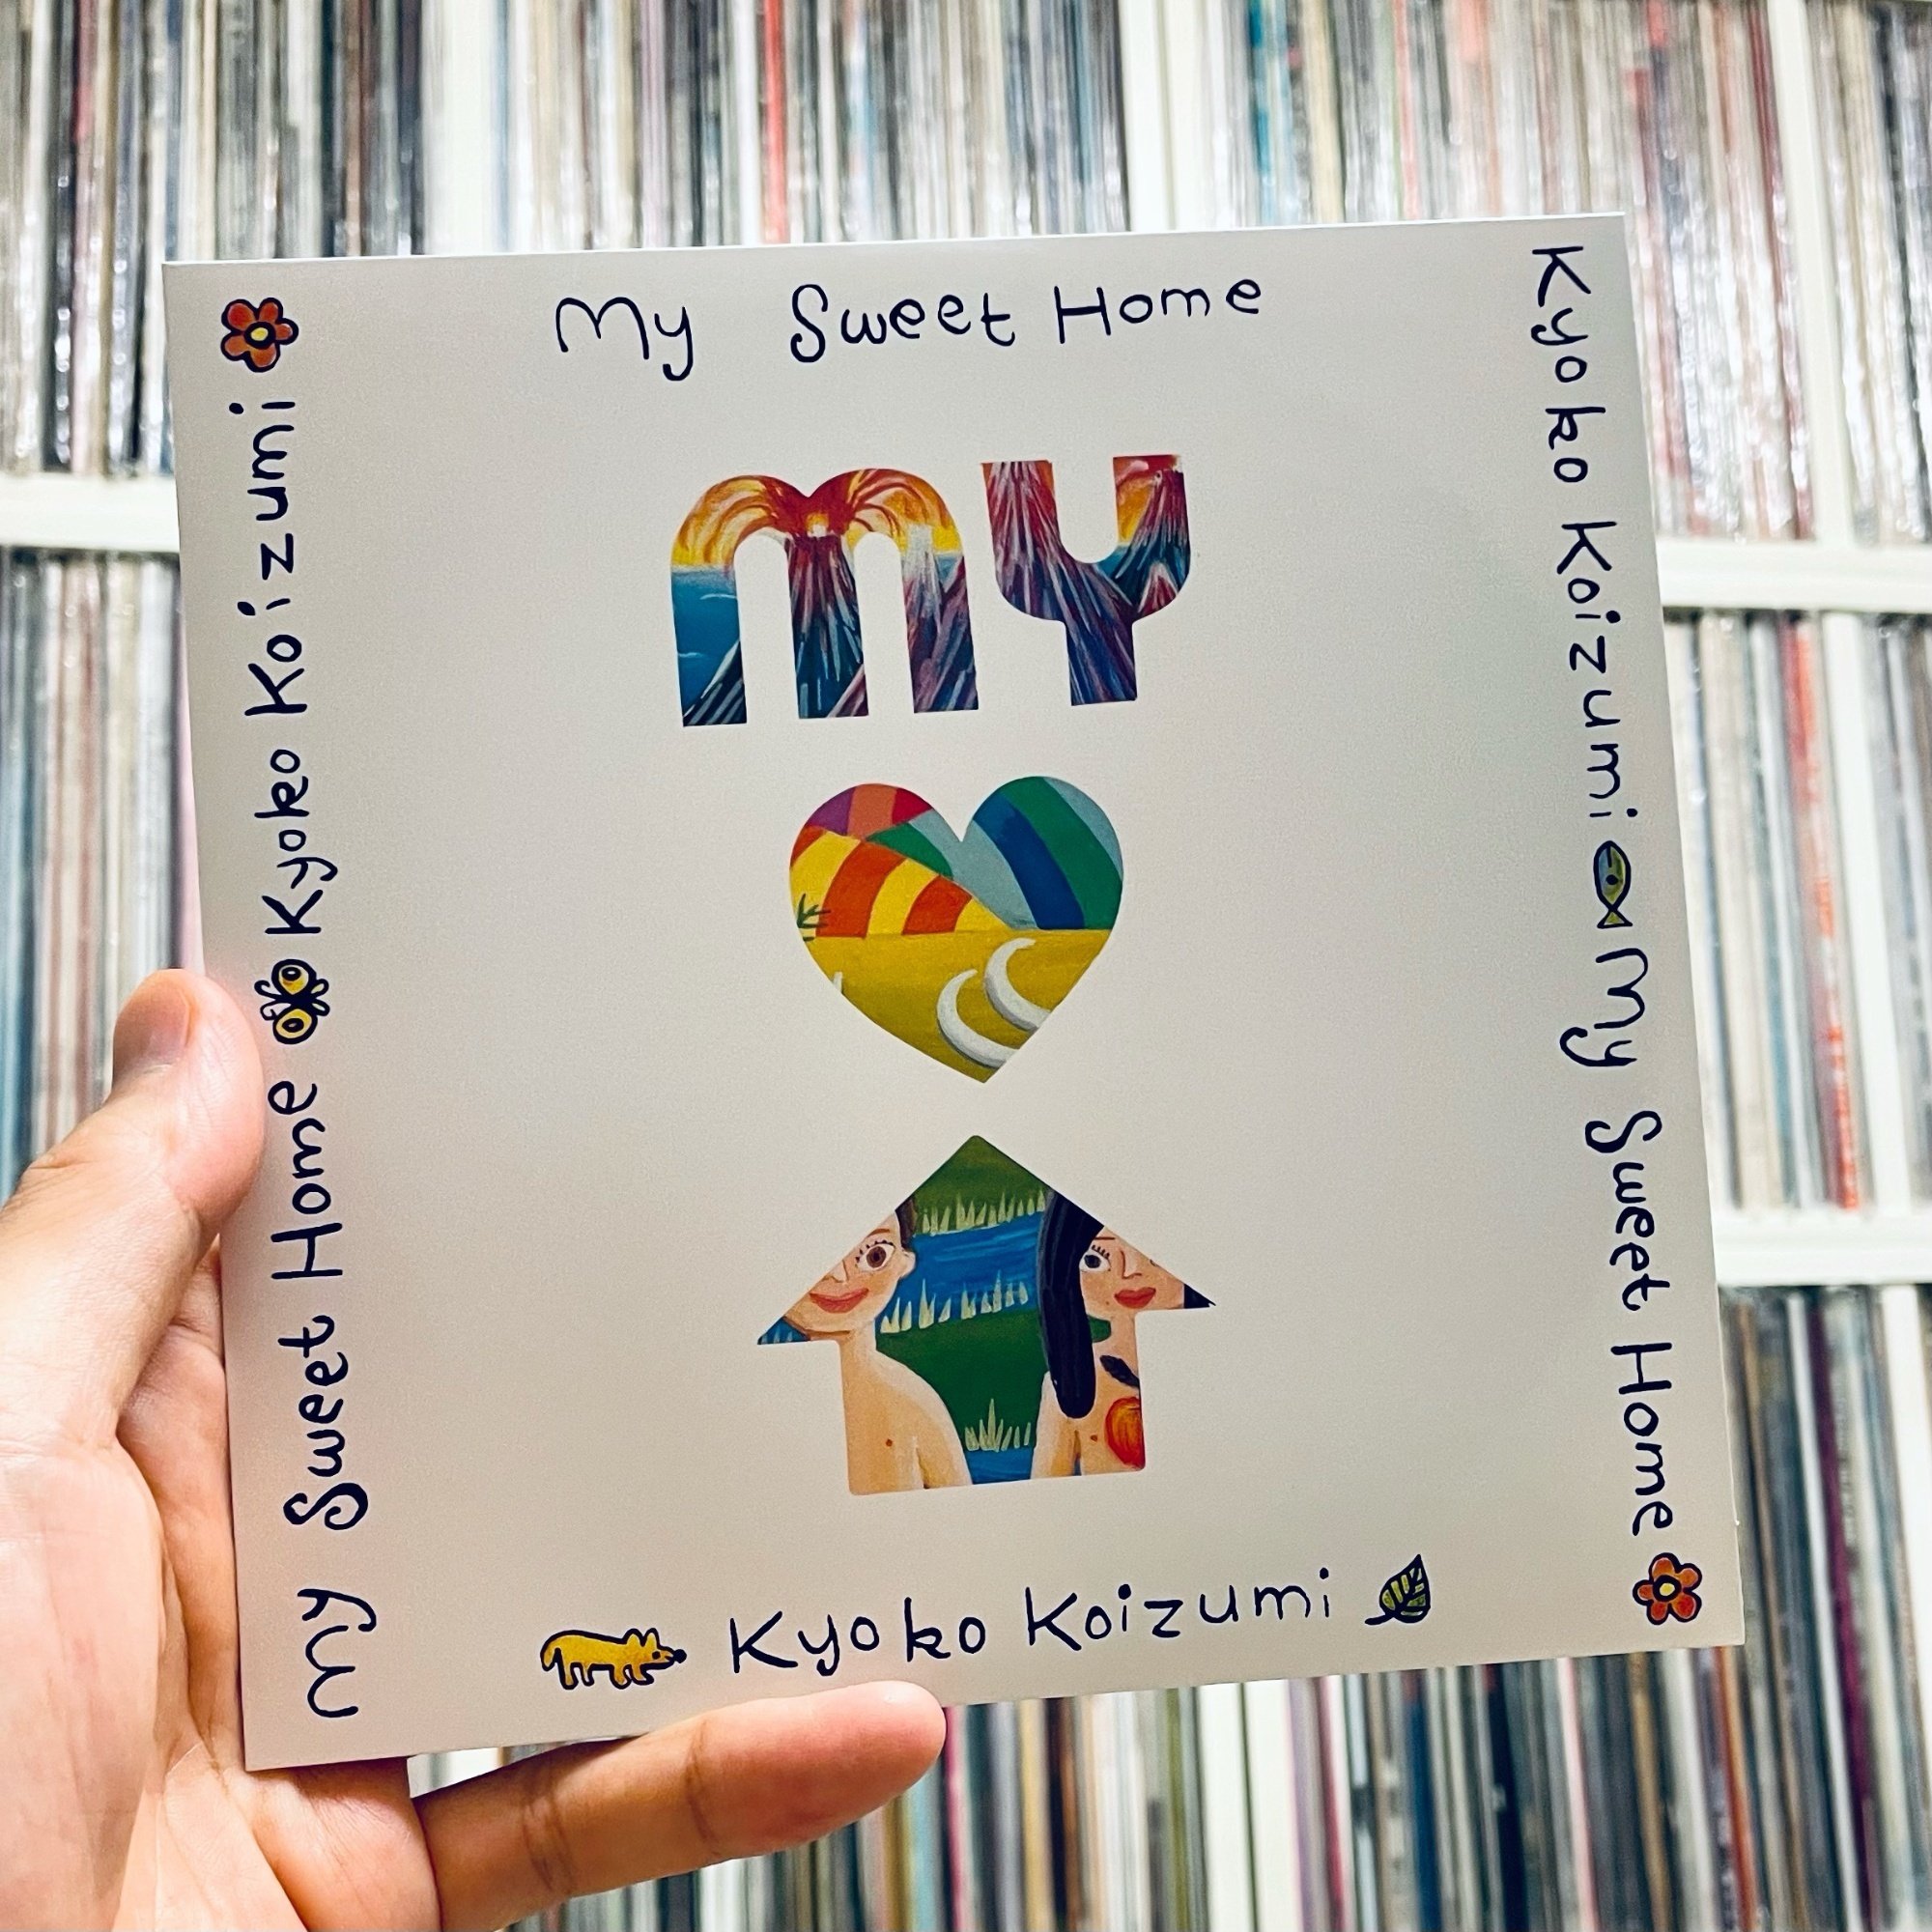 My Sweet Home
MY
Kyoko Koizumi
My Sweet Home Kyoko Koizumi
Kyoko Koizumi My Sweet Home